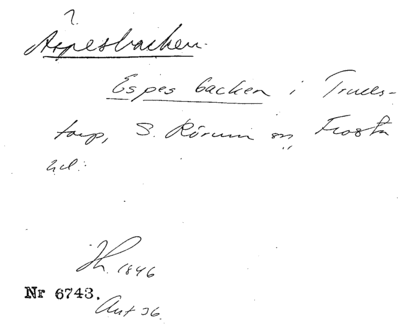 ?
Äspesbacken.
Espes backen i Truls-
torp, S. Rörum sn, Frosta
hd.
Jh. 1846
Nr 6743.
Ant 36.